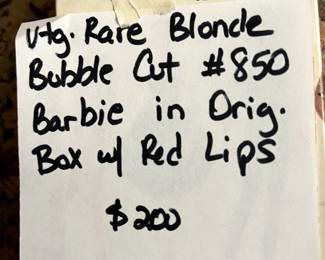 Vtg. Rare Blonde
Bubble Cut #850
Barbie in Orig.
Box w/ Red Lips
$200